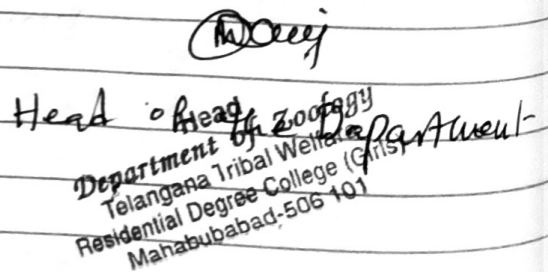 Head of Zoology Department
Head
Department of Zoology
Telangana Tribal Welfare
Residential Degree College (Girls)
Mahabubabad-506 101